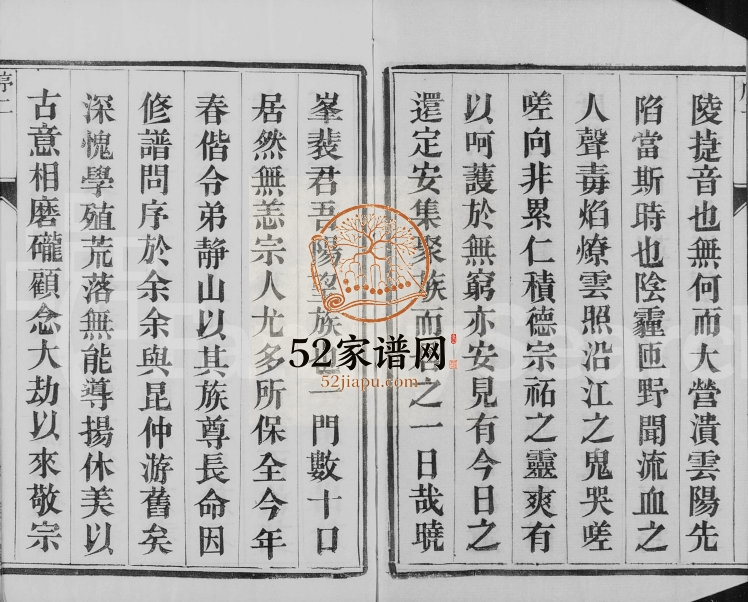 陵捷音也無何而大營潰雲陽先
陷當斯時也陰霾匝野聞流血之
人聲毒焰燎雲照沿江之鬼哭嗟
嗟向非累仁積德宗祏之靈爽有
以呵護於無窮亦安見有今日之
還定安集聚族而 之一日哉曉
峯裴君吾陽 族 一門數十口
居然無恙宗人尤多所保全今年
春偕令弟靜山以其族尊長命因
修譜問序於余余與昆仲游舊矣
深愧學殖荒落無能導揚休美以
古意相磨礲顧念大劫以來敬宗
序二
52家谱网
52jiapu.com